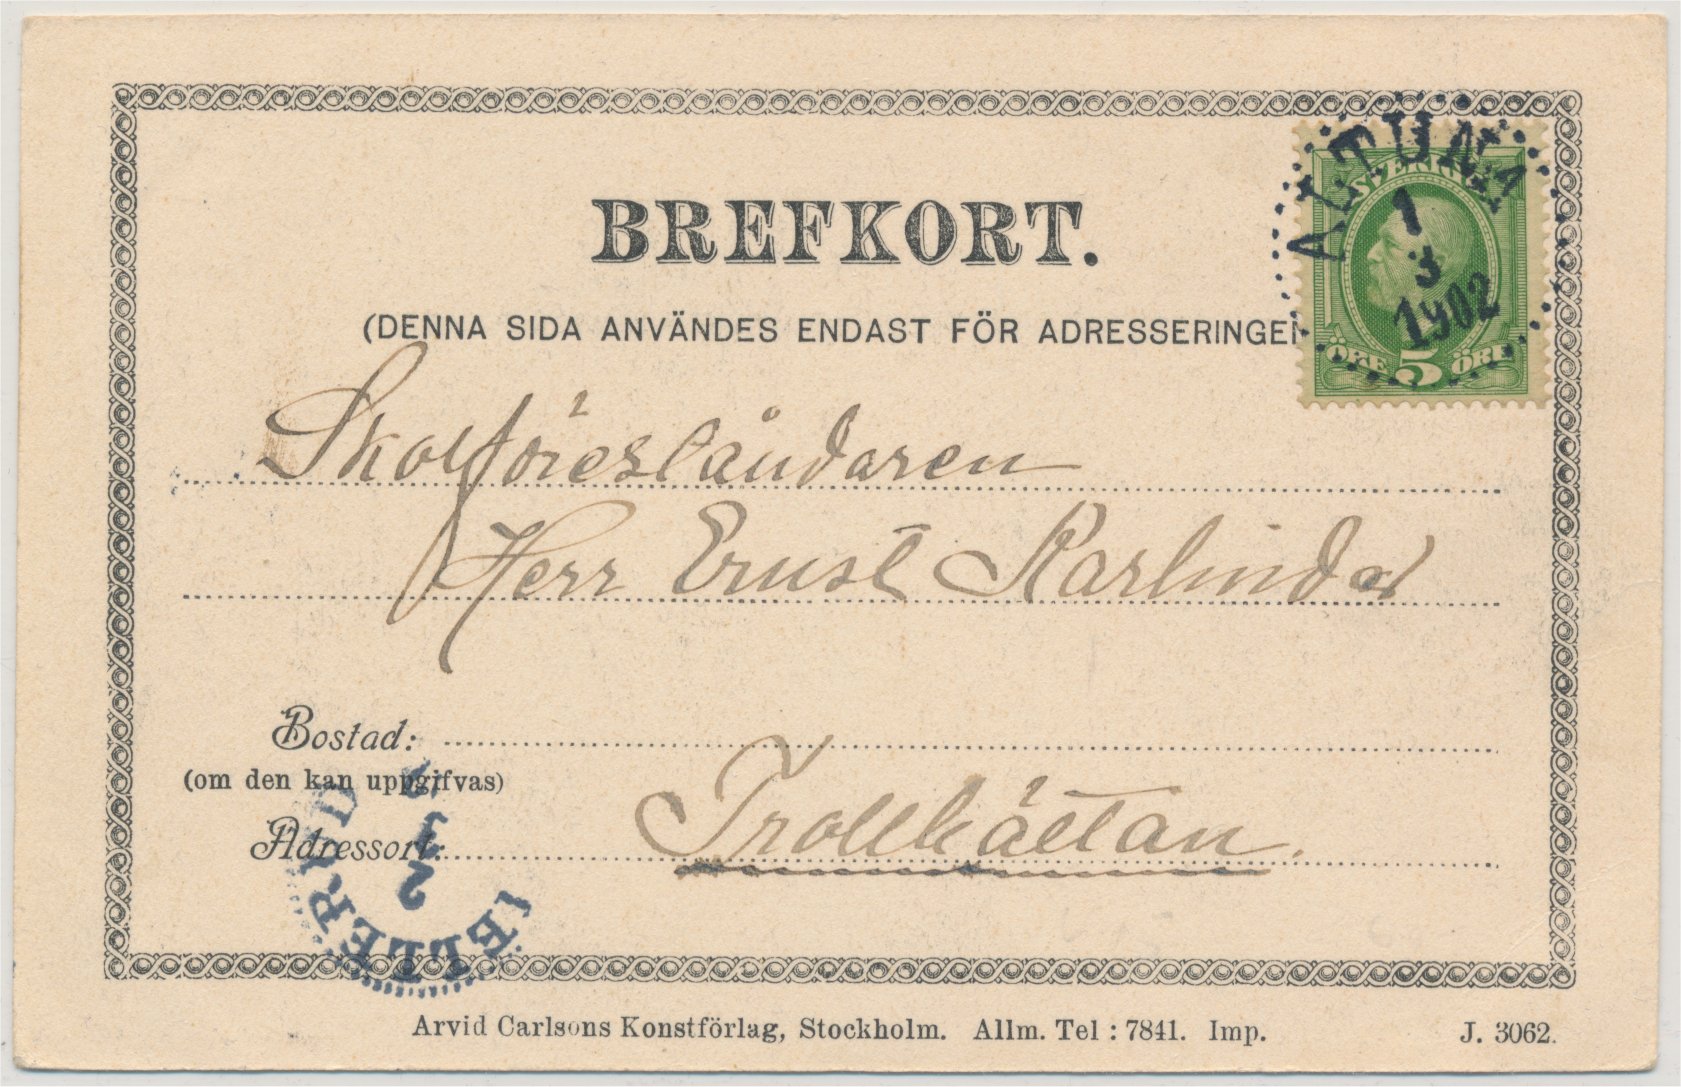 BREFKORT.
ALTUNA
1
3
1902
SVERIGE
ÖRE 5 ÖRE
(DENNA SIDA ANVÄNDES ENDAST FÖR ADRESSERINGEN
Skolföreståndaren
Herr Ernst Karlinder
Bostad:
(om den kan uppgifvas)
Adressort:
Trollhättan.
2
3
Arvid Carlsons Konstförlag, Stockholm. Allm. Tel : 7841. Imp.
J. 3062.